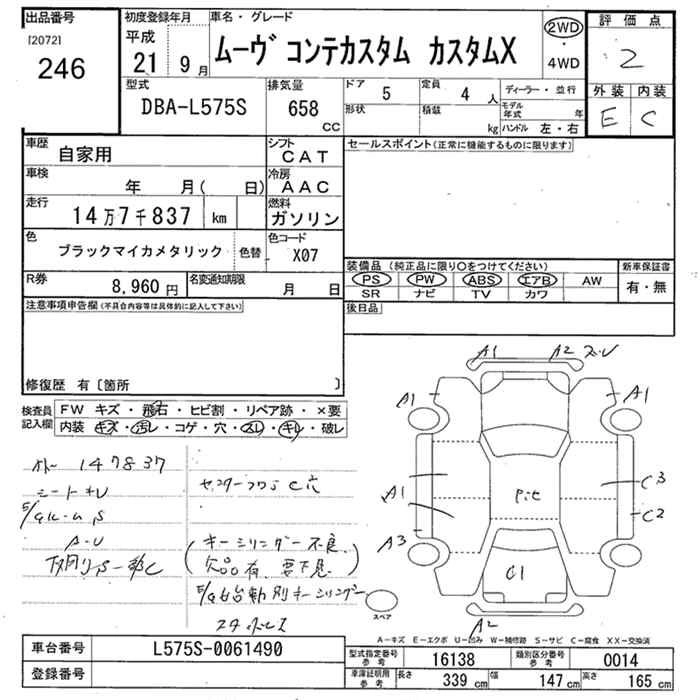 出品番号
[2072]
246
初度登録年月
平成
21 9 月
車名・グレード
ムーヴ コンテカスタム カスタムX
2WD
・
4WD
評価点
2
外装 内装
E C
型式
DBA-L575S
排気量
658
CC
ドア
5
定員
4 人
形状
積載
kg
ディーラー・並行
モデル年式
年
ハンドル 左・右
車歴
自家用
シフト
CAT
セールスポイント(正常に機能するものに限ります)
車検
年 月( 日)
冷房
AAC
走行
14万7千837 km
燃料
ガソリン
色
ブラックマイカメタリック
色替
色コード
X07
R券
8,960 円
名変通知期限
月 日
装備品 (純正品に限り○をつけてください)
PS PW ABS エアB AW
SR ナビ TV カワ
新車保証書
有・無
注意事項申告欄(不具合内容等は具体的に記入して下さい)
後日品
修復歴 有〔箇所 〕
検査員記入欄
FW キズ・飛石・ヒビ割・リペア跡・×要
内装 キズ・汚レ・コゲ・穴・スレ・キレ・破レ
147837
A-U
キーシリンダー不良
欠品有、要下見
A1
A2
A1
A1
A1
A3
C3
C2
C1
A2
スペア
A-キズ E-エクボ U-凹み W-補修跡 S-サビ C-腐食 XX-交換済
車台番号
L575S-0061490
登録番号
型式指定番号
参考
16138
類別区分番号
参考
0014
車庫証明用
参考
長さ
339 cm
幅
147 cm
高さ
165 cm